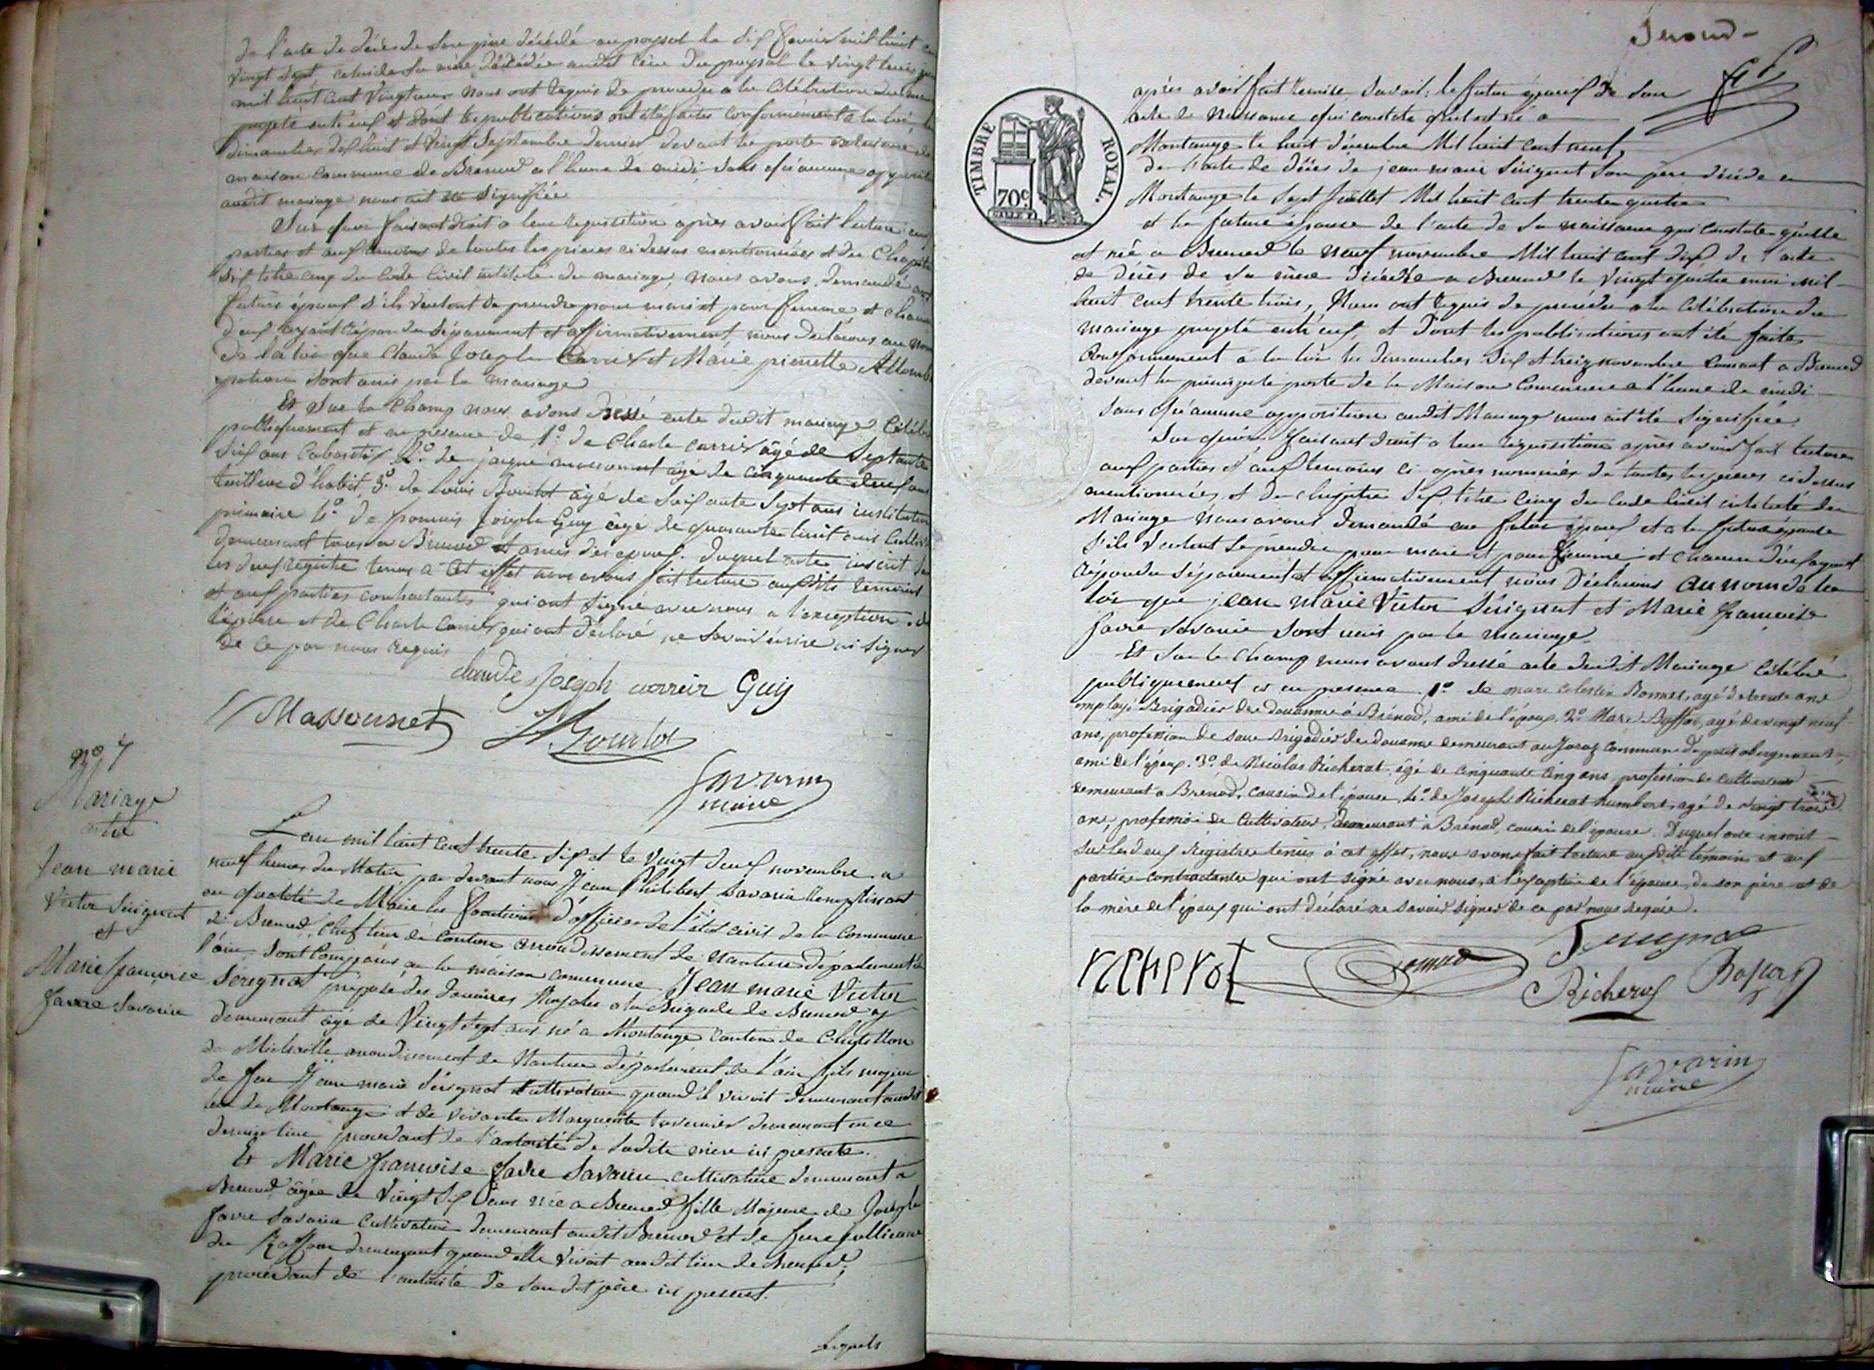 de l'acte de décès de son père décédé au poysat le dix février mil huit cent
vingt sept celui de sa mère décédée audit lieu du poysat le vingt trois
mil huit cent vingt nous ont requis de procéder à la célébration du mariage
projeté entr'eux et dont les publications ont été faites conformément à la loi, les
dimanches dix huit et vingt Septembre dernier devant la porte extérieure de
maison commune de Brenod à l'heure de midi, sans qu'aucune opposition
audit mariage nous ait été signifiée
Sur quoi faisant droit à leur requisition après avoir fait lecture aux
parties et aux témoins de toutes les pièces ci dessus mentionnées et du Chapitre
Six titre cinq du Code Civil intitulé du mariage, nous avons demandé aux
futurs époux s'ils veulent se prendre pour mari et pour femme, et chacun
d'eux ayant répondu séparément et affirmativement, nous déclarons au nom
de la loi que Claude Joseph Carrier et Marie pierrette Allom
sont unis par le mariage
Et Sur le Champ nous avons dressé acte dudit mariage célébré
publiquement et en présence de 1º. de Charle carrier âgé de Septante
Six ans Cabaretier 2º. de jacque massonnet âgé de cinquante deux ans
tailleur d'habit, 3º. de Louis Bourlot âgé de soixante Sept ans instituteur
primaire 4º. de françois Joseph Guy âgé de quarante huit ans
demeurant tous à Brenod et amis des époux. duquel acte inscrit sur
les deux registre tenus à cet effet nous avons fait lecture auxdits témoins
et aux parties contractantes qui ont signé avec nous à l'exception de
l'épouse et de Charle Carrier qui ont déclaré ne savoir écrire ni signer
de ce par nous requis
claude Joseph carrier Guy
Massonnet Bourlot
Savarin
maire
Nº 7
Mariage
entre
Jean marie
Victor Serignat
et
Marie françoise
Favre Savarin
L'an mil huit cent trente six et le vingt deux novembre à
neuf heures du Matin par devant nous Jean Philibert Savarin remplissant
en qualité de Maire les fonctions d'officier de l'état civil de la Commune
de Brenod, Chef lieu de Canton arrondissement de Nantua département de
l'ain, sont Comparus en la maison commune Jean marie Victor
Serignat préposé des douanes Royales à la Brigade de Brenod y
demeurant âgé de Vingt sept ans né à Montange Canton de Chatillon
de Michaille arrondissement de Nantua département de l'ain fils majeur
de feu Jean marie Serignat Cultivateur quand il vivait demeurant audit
lieu de Montange et de vivante Marguerite tavernier demeurant en ce
dernier lieu procédant de l'autorité de sadite mère ici présente.
Et Marie françoise favre Savarin cultivatrice demeurant à
Brenod âgée de Vingt Six ans née à Brenod fille Majeure de Joseph
favre Savarin Cultivateur demeurant audit Brenod et de feue
demeurant quand elle vivait audit lieu de Brenod,
procédant de l'autorité de son dit père ici présent.
Lequels
Second
TIMBRE ROYAL.
70c
après avoir fait remise Savoir, le futur époux de son
acte de Naissance qui constate qu'il est né à
Montange le huit décembre Mil huit cent neuf
de l'acte de décès de jean marie Serignat son père décédé à
Montange le Sept Juillet Mil huit cent trente quatre
et la future épouse de l'acte de sa naissance qui constate qu'elle
est née à Brenod le neuf novembre Mil huit cent dix de l'acte
de décès de sa mère décédée à Brenod le Vingt quatre mil
huit cent trente trois, Nous ont requis de procéder à la Célébration du
mariage projeté entr'eux, et dont les publications ont été faites
Conformément à la loi les dimanches Six et treize novembre Courant à Brenod
devant la principale porte de la Maison Commune à l'heure de midi
Sans qu'aucune opposition audit Mariage nous ait été signifiée.
Sur quoi faisant droit à leur requisition après avoir fait lecture
aux parties et aux témoins ci après nommés de toutes les pièces ci dessus
mentionnées, et du chapitre Six titre Cinq du Code Civil intitulé du
Mariage Nous avons demandé au futur époux et à la future épouse
s'ils veulent Se prendre pour mari et pour femme et chacun d'eux ayant
répondu séparément et affirmativement nous Déclarons au nom de la
loi que jean Marie Victor Serignat et Marie françoise
favre Savarin Sont unis par le mariage
Et Sur le Champ nous avons dressé acte dudit Mariage célébré
publiquement et en présence 1º de marc celestin Bonnet, agé de trente ans
employé Brigadier des douanes à Brénod, ami de l'époux 2º. Marc agé de vingt neuf
ans, profession de sous Brigadier de douanes demeurant au commune de
ami de l'époux. 3º. de Nicolas Richerot, agé de cinquante cinq ans profession de cultivateur
demeurant à Brénod, cousin de l'épouse, 4º. de Joseph Richerot humbert, agé de vingt trois
ans, profession de Cultivateur, demeurant à Brénod, cousin de l'épouse. Duquel acte inscrit
sur les deux Registres tenus à cet effet, nous avons fait lecture auxdits témoins et aux
parties contractantes qui ont signé avec nous, à l'exception de l'épouse, de son père et de
la mère de l'époux qui ont déclaré ne savoir signer de ce par nous requis.
Serignat
richerot
Richerot
Savarin
maire